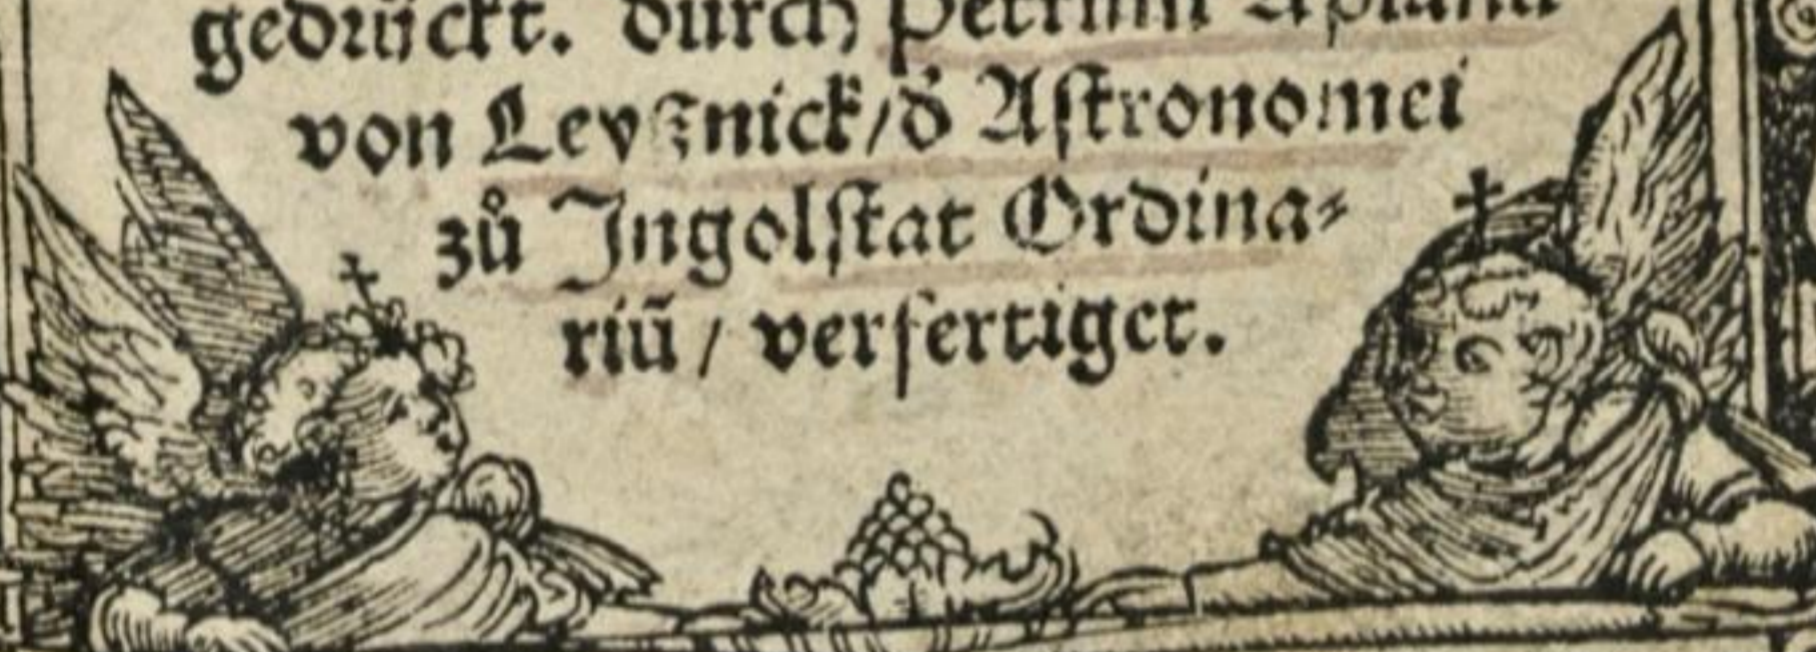 gedrückt. durch Petrum Apianū
von Leyßnick/ď Astronomei
zů Ingolstat Ordina⸗
riū / verfertiget.